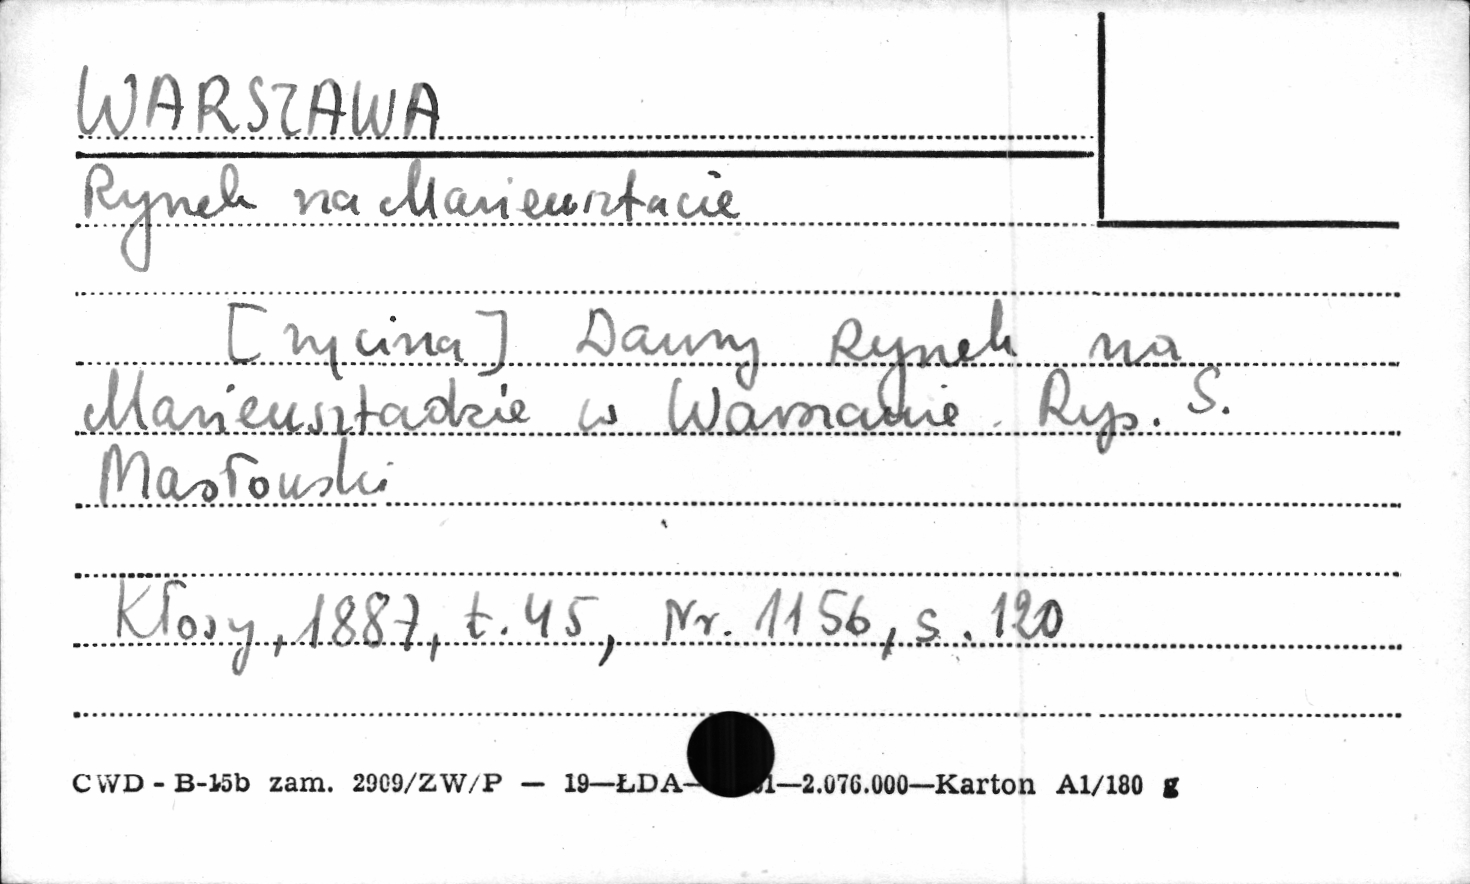 WARSZAWA
Rynek na Mariensztacie
[rycina] Dawny Rynek na
Mariensztadzie w Warszawie. Rys. S.
Masłowski
Kłosy, 1887, t. 45, Nr. 1156, s. 120
CWD - B-15b zam. 2909/ZW/P — 19—ŁDA— 1—2.076.000—Karton A1/180 g